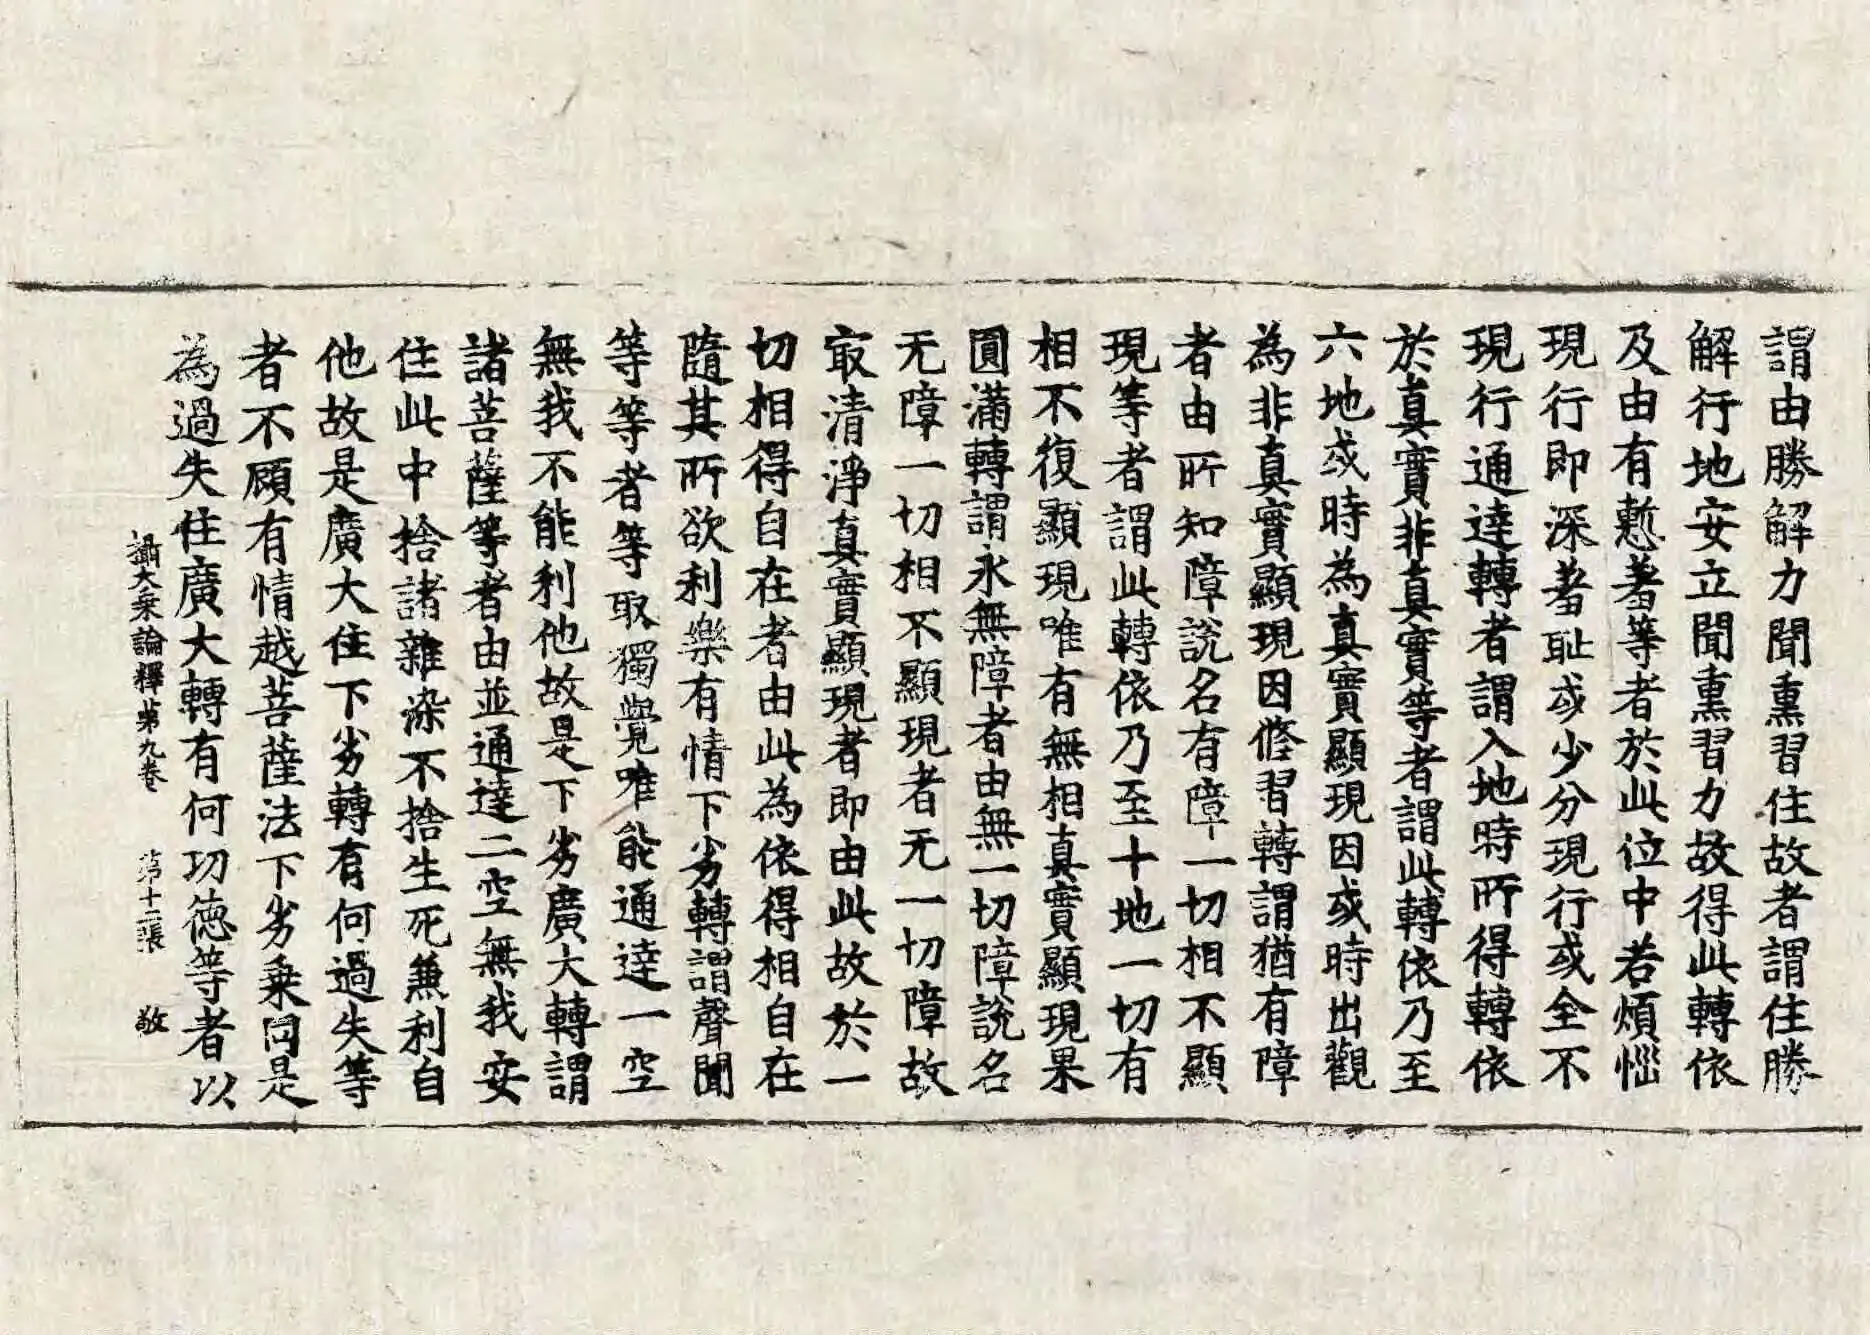 謂由勝解力聞熏習住故者謂住勝
解行地安立聞熏習力故得此轉依
及由有慙羞等者於此位中若煩惱
現行即深羞耻或少分現行或全不
現行通達轉者謂入地時所得轉依
於真實非真實等者謂此轉依乃至
六地或時為真實顯現因或時出觀
為非真實顯現因修習轉謂猶有障
者由所知障說名有障一切相不顯
現等者謂此轉依乃至十地一切有
相不復顯現唯有無相真實顯現果
圓滿轉謂永無障者由無一切障說名
无障一切相不顯現者无一切障故
㝡清淨真實顯現者即由此故於一
切相得自在者由此為依得相自在
隨其所欲利樂有情下劣轉謂聲聞
等等者等取獨覺唯能通達一空
無我不能利他故是下劣廣大轉謂
諸菩薩等者由並通達二空無我安
住此中捨諸雜染不捨生死兼利自
他故是廣大住下劣轉有何過失等
者不顧有情越菩薩法下劣乗同是
為過失住廣大轉有何功德等者以
攝大乗論釋第九卷 第十二張 敬